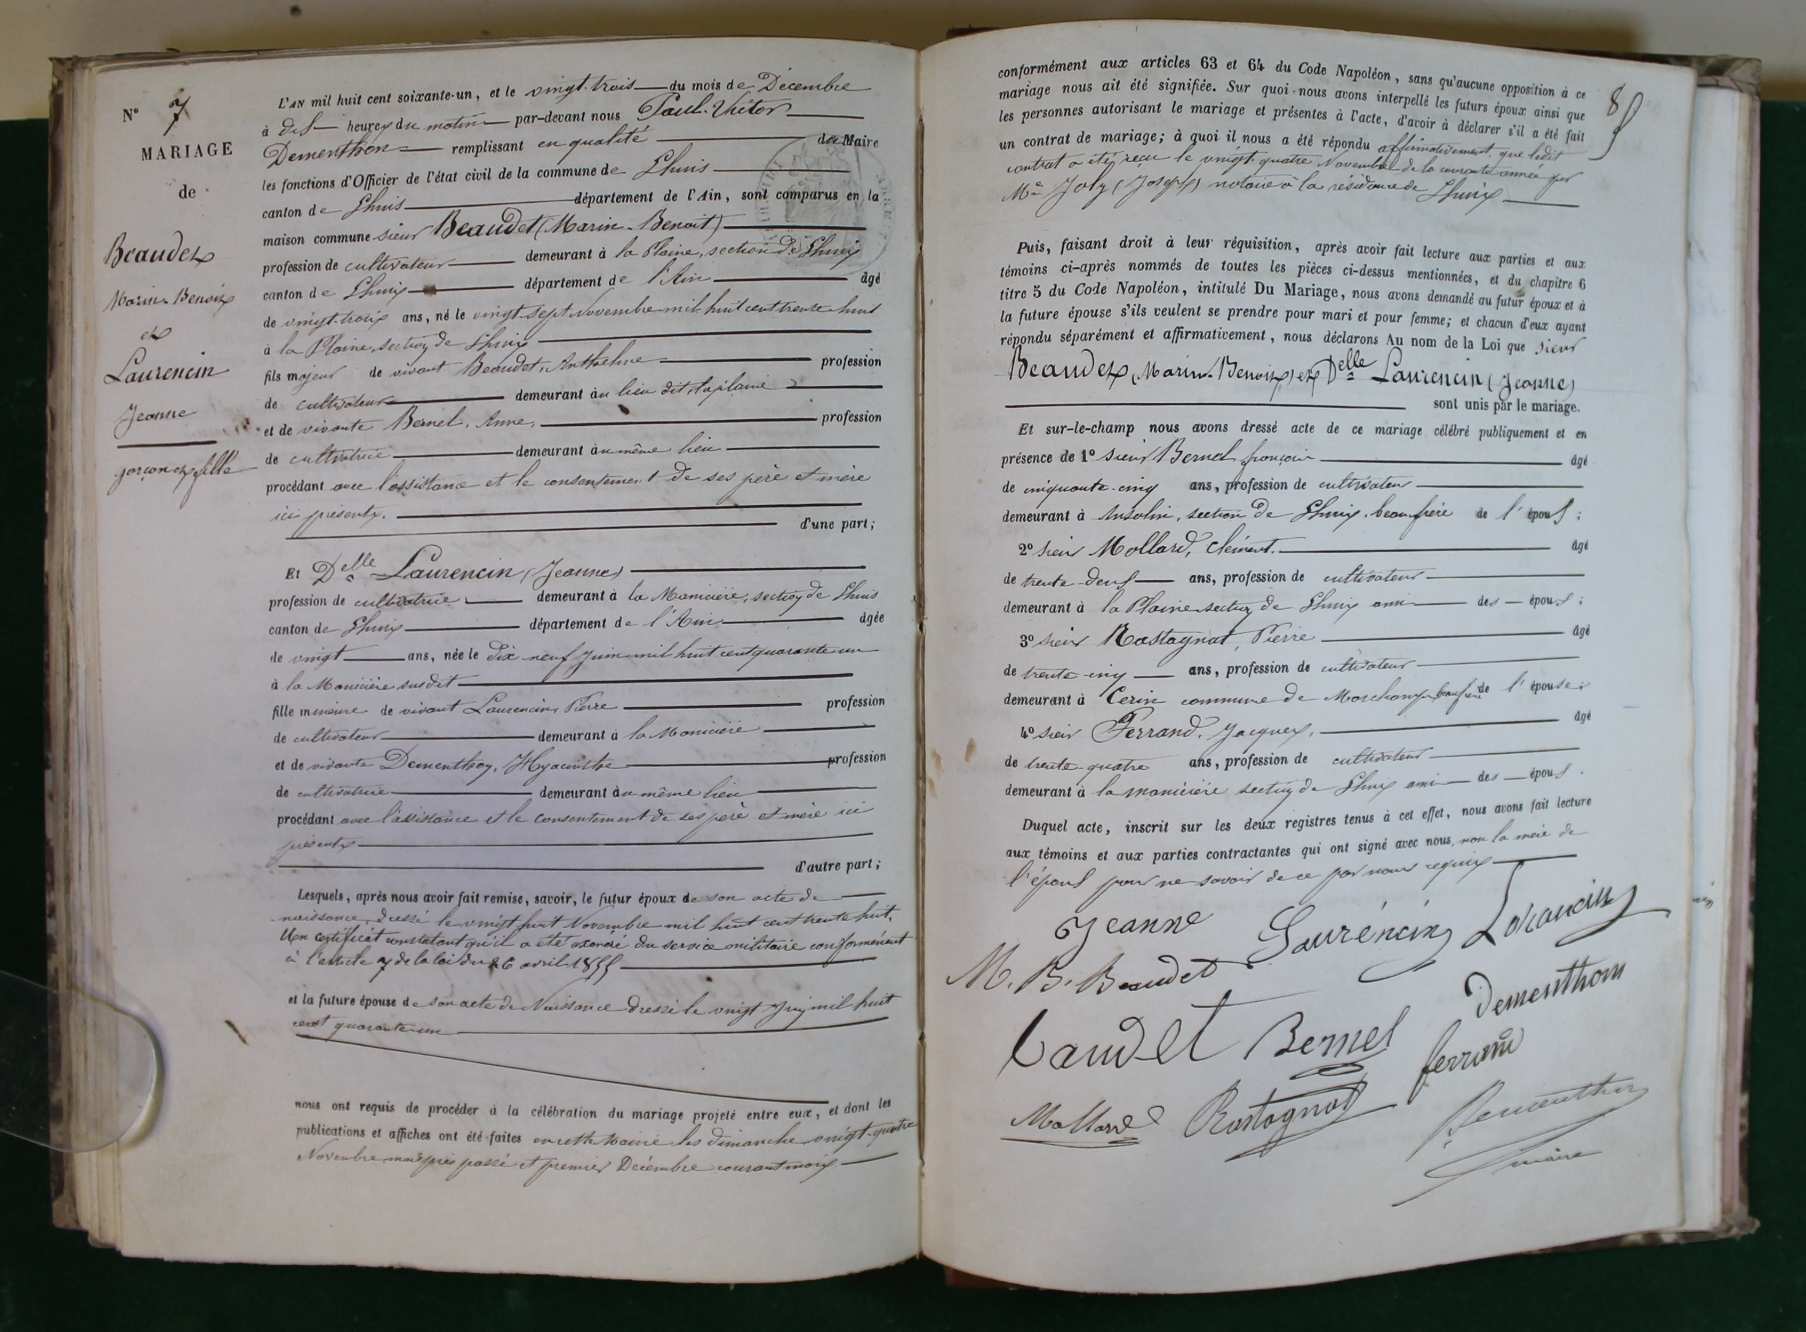 N° 7
MARIAGE
de
Beaudet
Marin-Benoit
et
Laurencin
Jeanne
garçon et fille
L'AN mil huit cent soixante-un, et le vingt-trois du mois de Décembre
à dix heures du matin par-devant nous Paul-Victor
Dementhon remplissant en qualité de Maire
les fonctions d'Officier de l'état civil de la commune de Lhuis
canton de Lhuis département de l'Ain, sont comparus en la
maison commune sieur Beaudet (Marin-Benoit)
profession de cultivateur demeurant à la Plaine, section de Lhuis
canton de Lhuis département de l'Ain âgé
de vingt-trois ans, né le vingt-sept Novembre mil huit cent trente huit
à la Plaine, section de Lhuis
fils majeur de vivant Beaudet, Anthelme profession
de cultivateur demeurant au lieu dit la plaine
et de vivante Bernel, Anne, profession
de cultivatrice demeurant au même lieu
procédant avec l'assistance et le consentement de ses père et mère
ici présents. d'une part;
Et Delle Laurencin (Jeanne)
profession de cultivatrice demeurant à la Manicière, section de Lhuis
canton de Lhuis département de l'Ain âgée
de vingt ans, née le dix neuf juin mil huit cent quarante un
à la Manicière susdit
fille mineure de vivant Laurencin, Pierre profession
de cultivateur demeurant à la Manicière
et de vivante Dementhon, Hyacinthe profession
de cultivatrice demeurant au même lieu
procédant avec l'assistance et le consentement de ses père et mère ici
présents
d'autre part;
Lesquels, après nous avoir fait remise, savoir, le futur époux de son acte de
naissance, dressé le vingt huit Novembre mil huit cent trente huit,
Un certificat constatant qu'il a été exonéré du service militaire conformément
à l'article 7 de la loi du 26 avril 1855
et la future épouse de son acte de Naissance dressé le vingt Juin mil huit
cent quarante un
nous ont requis de procéder à la célébration du mariage projeté entre eux, et dont les
publications et affiches ont été faites en cette Mairie les dimanches vingt-quatre
Novembre mois passé et premier Décembre courant mois
8
conformément aux articles 63 et 64 du Code Napoléon, sans qu'aucune opposition à ce
mariage nous ait été signifiée. Sur quoi nous avons interpellé les futurs époux ainsi que
les personnes autorisant le mariage et présentes à l'acte, d'avoir à déclarer s'il a été fait
un contrat de mariage; à quoi il nous a été répondu affirmativement, que ledit
contrat a été reçu le vingt-quatre Novembre de la courante année par
Me Joly (Joseph) notaire à la résidence de Lhuis
Puis, faisant droit à leur réquisition, après avoir fait lecture aux parties et aux
témoins ci-après nommés de toutes les pièces ci-dessus mentionnées, et du chapitre 6
titre 5 du Code Napoléon, intitulé Du Mariage, nous avons demandé au futur époux et à
la future épouse s'ils veulent se prendre pour mari et pour femme; et chacun d'eux ayant
répondu séparément et affirmativement, nous déclarons Au nom de la Loi que sieur
Beaudet (Marin-Benoit) et Delle Laurencin (Jeanne)
sont unis par le mariage.
Et sur-le-champ nous avons dressé acte de ce mariage célébré publiquement et en
présence de 1° sieur Bernel françois âgé
de cinquante-cinq ans, profession de cultivateur
demeurant à Ansolin, section de Lhuis, beaufrère de l'époux;
2° sieur Mollard, Clément. âgé
de trente-deux ans, profession de cultivateur
demeurant à la Plaine section de Lhuis ami des époux;
3° sieur Rostagnat, Pierre âgé
de trente cinq ans, profession de cultivateur
demeurant à Cerin commune de Marchamp beaufrère de l'épouse;
4° sieur Ferrand, Jacques, âgé
de trente-quatre ans, profession de cultivateur
demeurant à la manicière section de Lhuis ami des époux.
Duquel acte, inscrit sur les deux registres tenus à cet effet, nous avons fait lecture
aux témoins et aux parties contractantes qui ont signé avec nous, non la mère de
l'époux pour ne savoir de ce par nous requis
Jeanne Lauréncin Lorancin
M. B. Beaudet
Baudet Bernel Dementhon
Mollard Rostagnat ferrand
Dementhon
maire